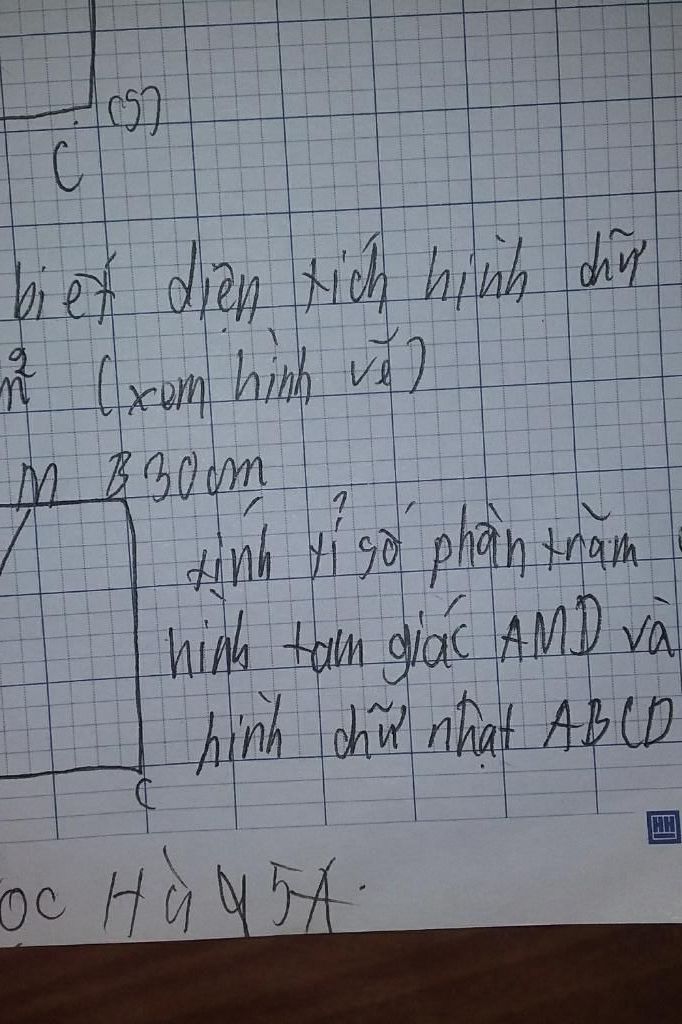 (5)
C
biết diện tích hình chữ
m² (xem hình vẽ)
M B 30cm
tính tỉ số phần trăm
hình tam giác AMD và
hình chữ nhật ABCD
C
HH
ọc Hà 45A.